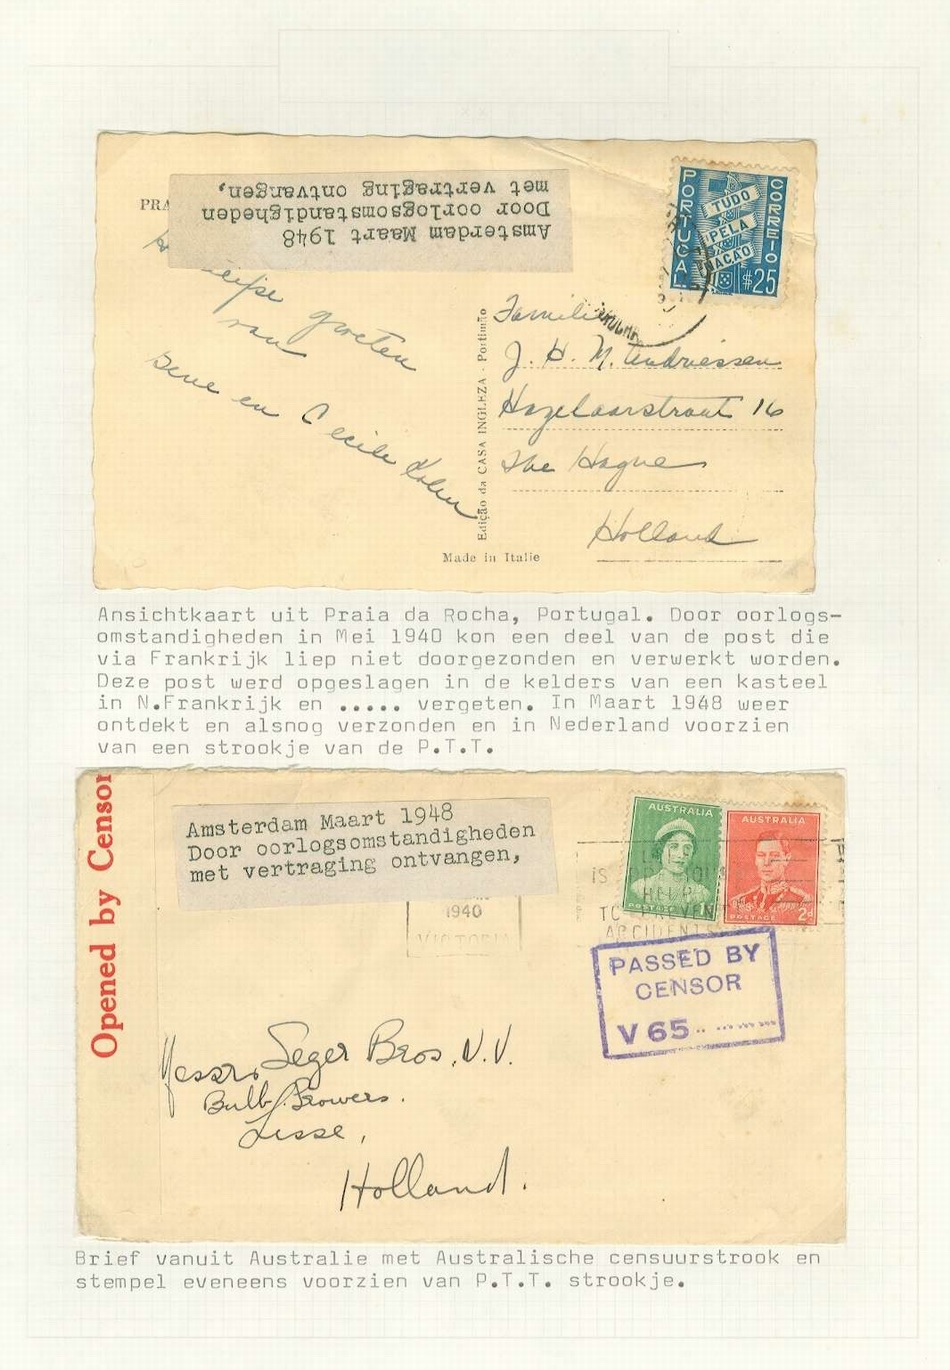 PRA
Amsterdam Maart 1948
Door oorlogsomstandigheden
met vertraging ontvangen,
groeten
van
en Cecile
Edição da CASA INGLEZA - Portimão
Made in Italie
PORTUGAL
CORREIO
TUDO
PELA
NAÇÃO
$25
Familie
J. H. M. Andriessen
Hazelaarstraat 16
The Hague
Holland
Ansichtkaart uit Praia da Rocha, Portugal. Door oorlogs-
omstandigheden in Mei 1940 kon een deel van de post die
via Frankrijk liep niet doorgezonden en verwerkt worden.
Deze post werd opgeslagen in de kelders van een kasteel
in N.Frankrijk en ..... vergeten. In Maart 1948 weer
ontdekt en alsnog verzonden en in Nederland voorzien
van een strookje van de P.T.T.
Opened by Censor
Amsterdam Maart 1948
Door oorlogsomstandigheden
met vertraging ontvangen,
1940
VICTORIA
AUSTRALIA
POSTAGE 1D
AUSTRALIA
POSTAGE 2d
IS YOUR
HELP
TO PREVENT
ACCIDENTS
PASSED BY
CENSOR
V 65
Messrs. Seger Bros. N.V.
Bulb Growers.
Lisse,
Holland.
Brief vanuit Australie met Australische censuurstrook en
stempel eveneens voorzien van P.T.T. strookje.